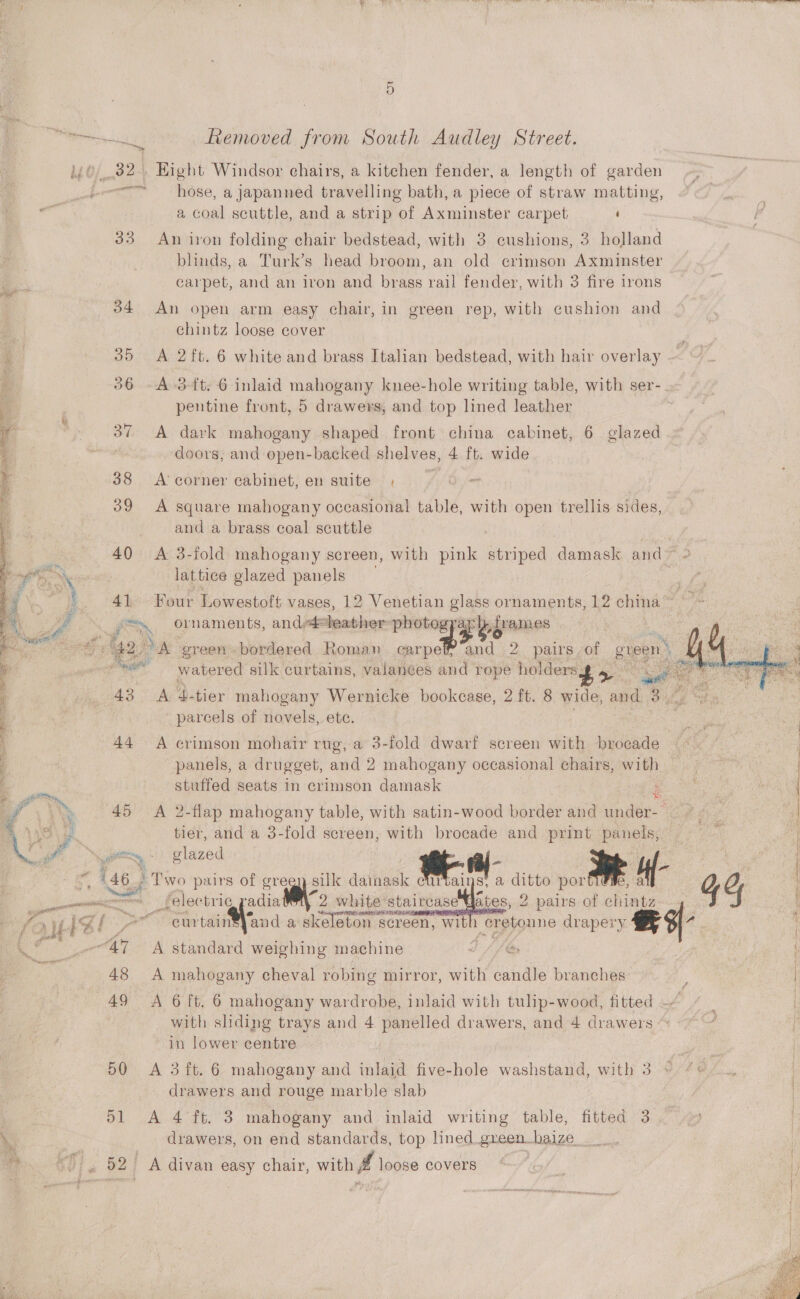 5
Removed from South Audley Street.
32 Eight Windsor chairs, a kitchen fender, a length of garden
hose, a japanned travelling bath, a piece of straw matting,
a coal scuttle, and a strip of Axminster carpet
33 An iron folding chair bedstead, with 3 cushions, 3 holland
blinds, a Turk's head broom, an old crimson Axminster
carpet, and an iron and brass rail fender, with 3 fire irons
34 An open arm easy chair, in green rep, with cushion and
chintz loose cover
35 A 2ft. 6 white and brass Italian bedstead, with hair overlay
36 A 3-ft. 6 inlaid mahogany knee-hole writing table, with ser-
pentine front, 5 drawers, and top lined leather
37 A dark mahogany shaped front china cabinet, 6 glazed
doors, and open-backed shelves, 4 ft. wide
38 A corner cabinet, en suite
39 A square mahogany occasional table, with open trellis sides,
and a brass coal scuttle
40 A 3-fold mahogany screen, with pink striped damask and
lattice glazed panels
41 Four Lowestoft vases, 12 Venetian glass ornaments, 12 china
ornaments, and 4 leather photograph frames
42 A green bordered Roman carpet and 2 pairs of green
watered silk curtains, valances and rope holders
43 A 4-tier mahogany Wernicke bookcase, 2 ft. 8 wide, and 3
parcels of novels, etc.
44 A crimson mohair rug, a 3-fold dwarf screen with brocade
panels, a drugget, and 2 mahogany occasional chairs, with
stuffed seats in crimson damask
45 A 2-flap mahogany table, with satin-wood border and under-
tier, and a 3-fold screen, with brocade and print panels,
glazed
46 Two pairs of green silk damask curtains, a ditto
electric 2 white staircase gates, 2 pairs of chintz
curtains and a skeleton screen, with cretonne drapery
47 A standard weighing machine
48 A mahogany cheval robing mirror, with candle branches
49 A 6 ft. 6 mahogany wardrobe, inlaid with tulip-wood, fitted
with sliding trays and 4 panelled drawers, and 4 drawers
in lower centre
50 A 3 ft. 6 mahogany and inlaid five-hole washstand, with 3
drawers and rouge marble slab
51 A 4 ft. 3 mahogany and inlaid writing table, fitted 3
drawers, on end standards, top lined green baize
52 A divan easy chair, with loose covers